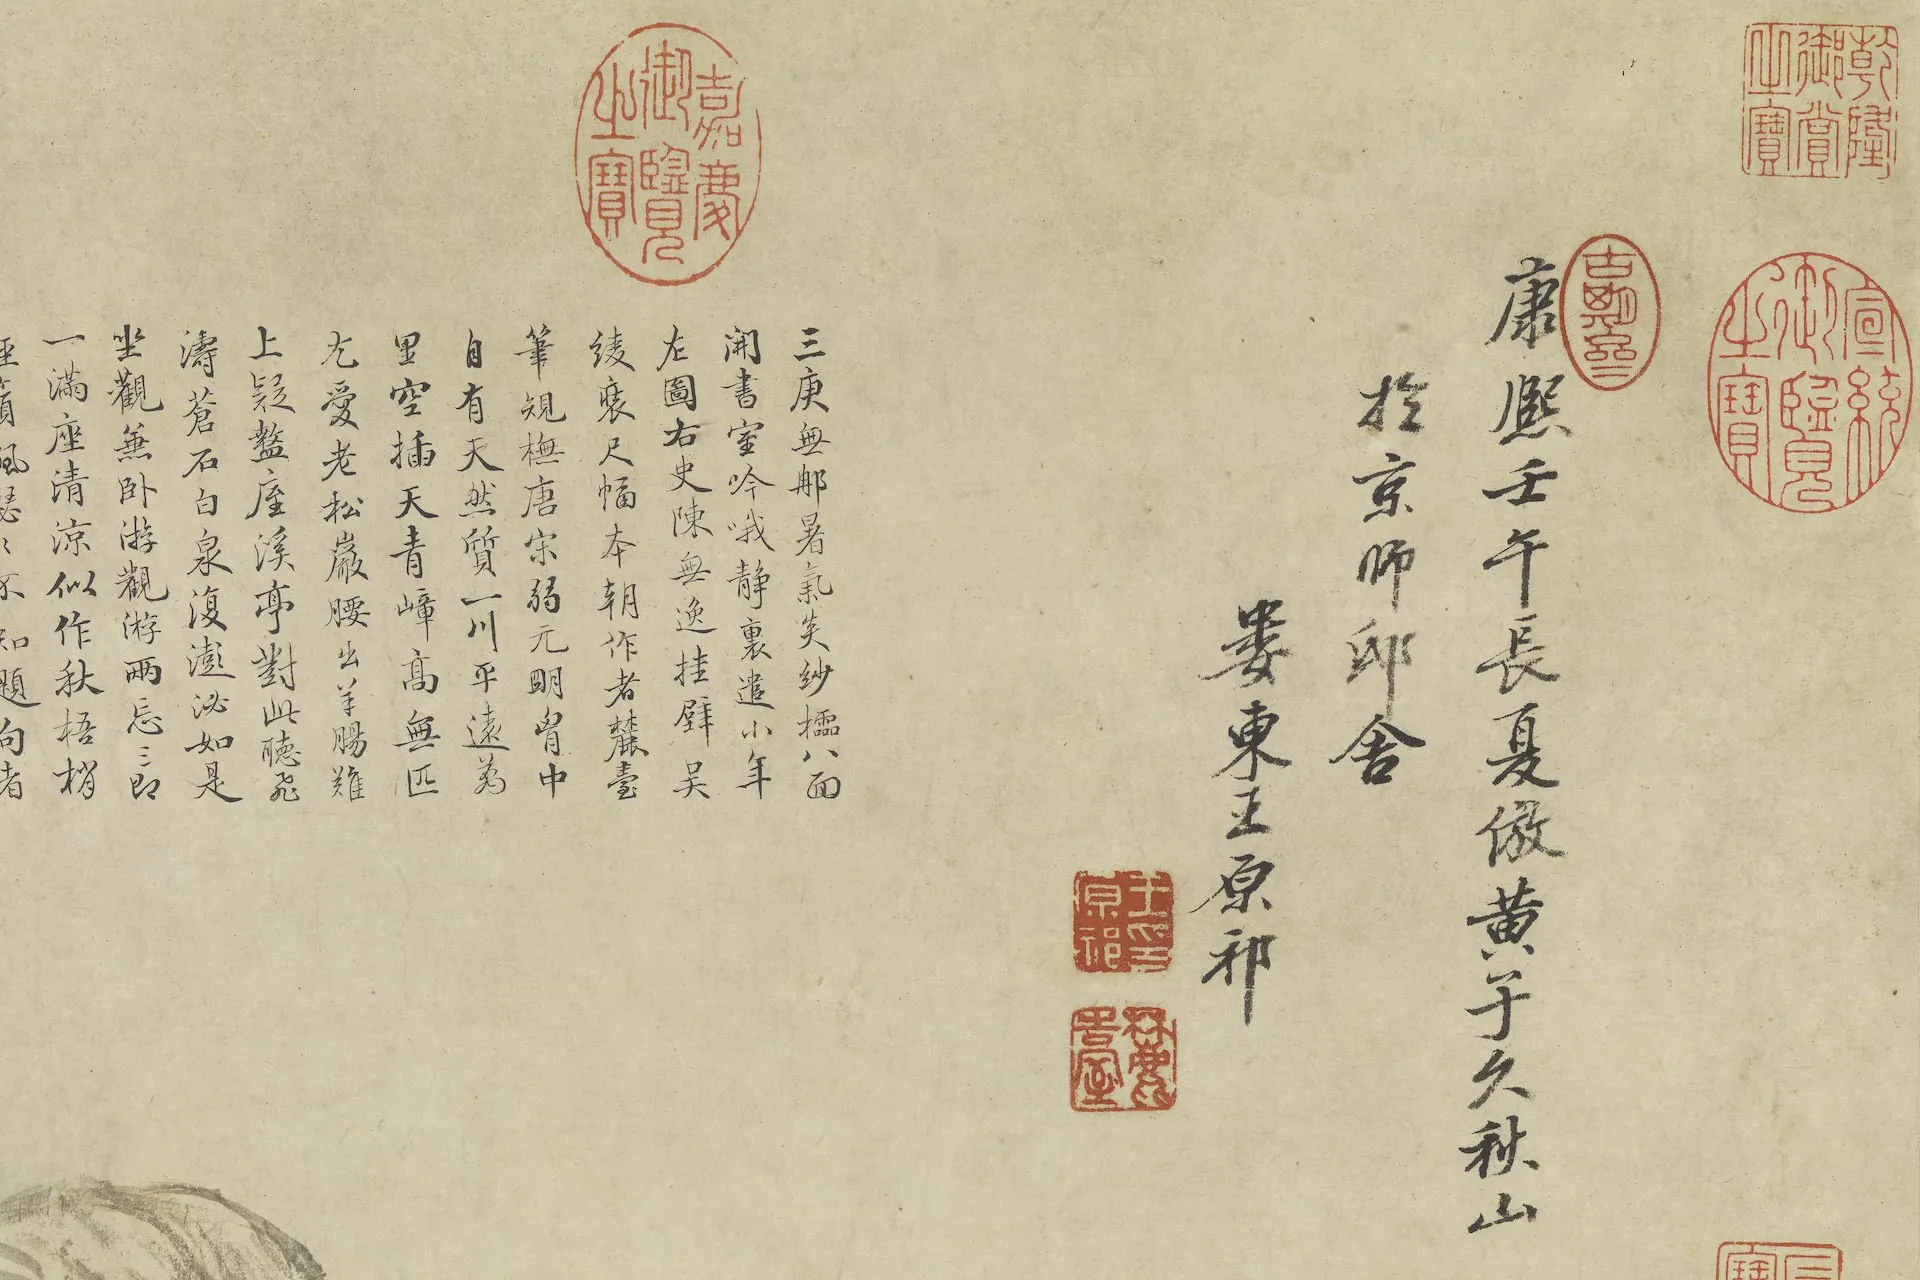 乾隆御賞之寶
宣統御覽之寶
康熙壬午長夏倣黃子久秋山
於京師邸舍
婁東王原祁
王原祁印
麓臺
嘉慶御覽之寶
三庚無那暑氣炎紗櫺八面
開書室吟哦靜裏遣小年
左圖右史陳無逸挂壁吳
綾裹尺幅本朝作者麓臺
筆規橅唐宋弱元明胷中
自有天然質一川平遠為
里空插天青嶂高無匹
尤愛老松巖腰出羊腸難
上疑盩庢溪亭對此聽飛
濤蒼石白泉復澎泌如是
坐觀無卧游觀游兩忘三即
一滿座清涼似作秋梧梢
知題句者